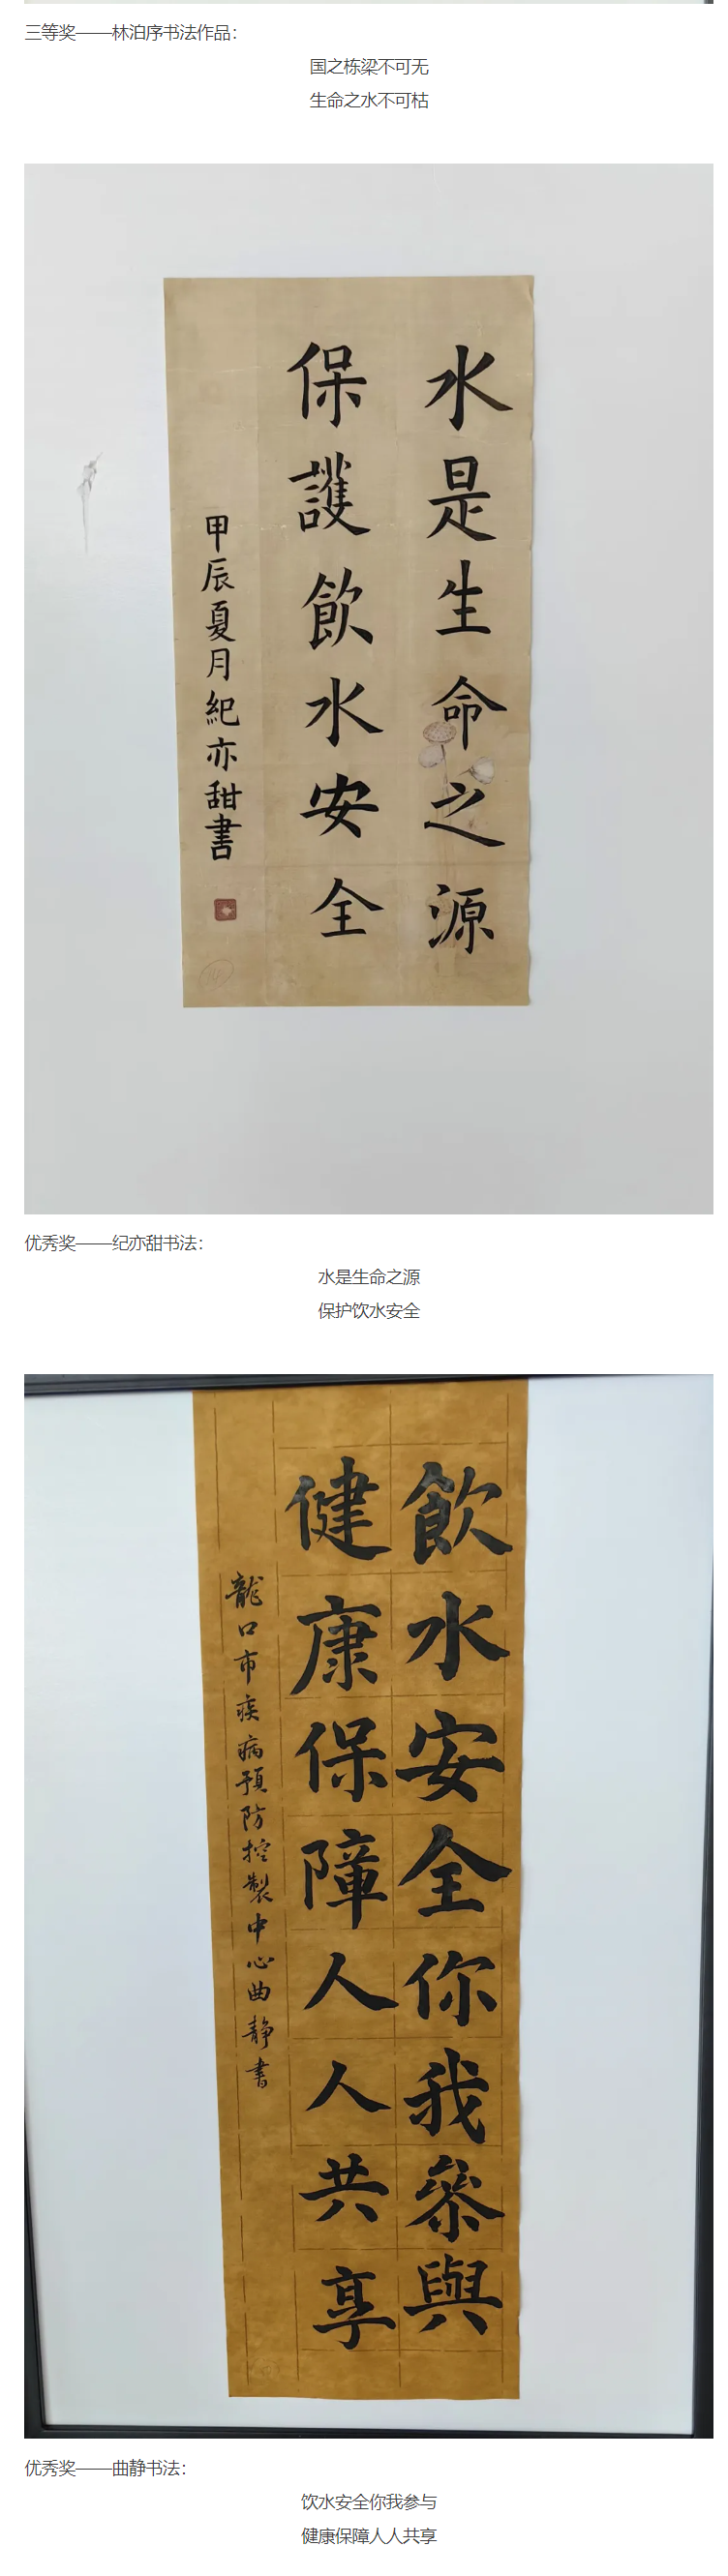 三等奖——林泊序书法作品：
国之栋梁不可无
生命之水不可枯
水是生命之源
保護飲水安全
甲辰夏月紀亦甜書
优秀奖——纪亦甜书法：
水是生命之源
保护饮水安全
飲水安全你我參與
健康保障人人共享
龍口市疾病預防控製中心曲靜書
优秀奖——曲静书法：
饮水安全你我参与
健康保障人人共享